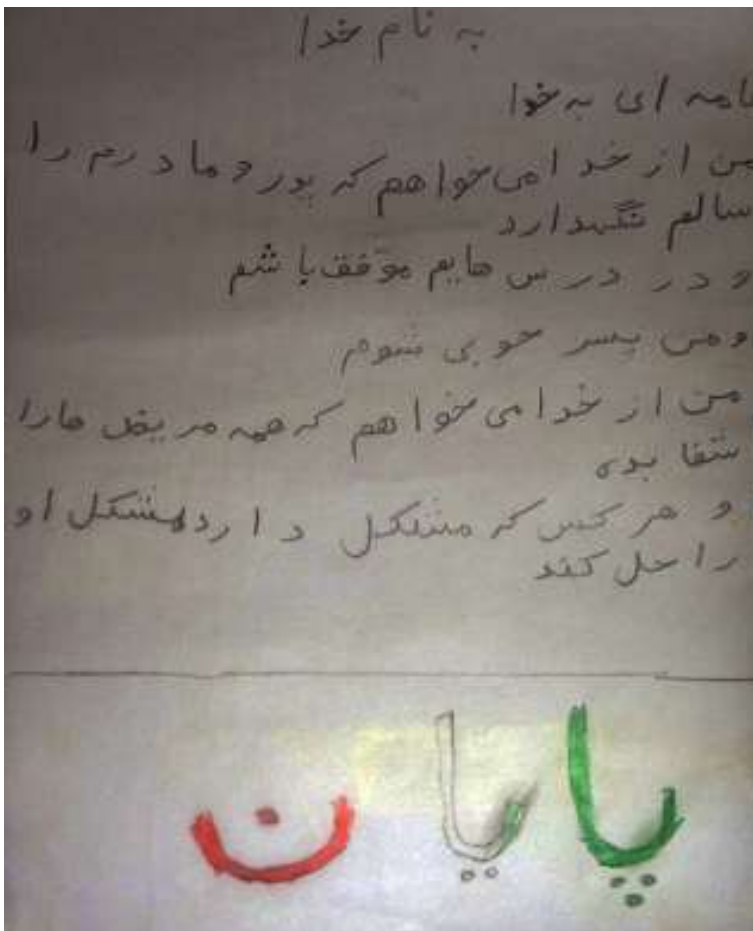 به نام خدا
نامه ای به خدا
من از خدا می خواهم که پدر و مادرم را
سالم نگهدارد
و در درس هایم موّفق باشم
و من پسر خوبی شوم
من از خدا می خواهم که همه مریض هارا
شفا بدی
و هر کس که مشکل دارد مشکل او
را حل کند
پایان